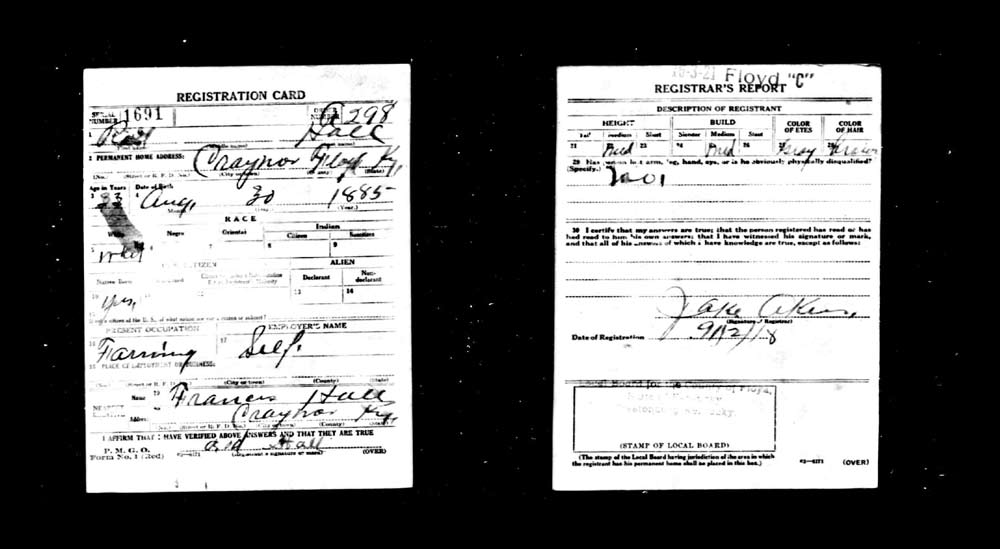 REGISTRATION CARD
SERIAL NUMBER 1691 ORDER NUMBER A 298
1 Hall
2 PERMANENT HOME ADDRESS: Craynor Floyd Ky.
(No.) (Street or R. F. D. No.) (City or town) (County) (State)
Age in Years Date of Birth
3 33 4 Aug. 30 1885
(Year.)
RACE
White Negro Oriental Indian
Citizen Noncitizen
5 8 9
U. S. CITIZEN ALIEN
Native Born Declarant Non-declarant
10 yes 11 12 13 14
15
If not a citizen of the U. S., of what nation are you a citizen or subject?
PRESENT OCCUPATION EMPLOYER'S NAME
16 Farming 17 Self
18 PLACE OF EMPLOYMENT OR BUSINESS:
(No.) (Street or R. F. D. No.) (City or town) (County) (State)
NEAREST RELATIVE Name 19 Francis Hall
Address 20 Craynor Ky.
(No.) (Street or R. F. D. No.) (City or town) (County) (State)
I AFFIRM THAT I HAVE VERIFIED ABOVE ANSWERS AND THAT THEY ARE TRUE
P. M. G. O.
Form No. 1 (Red) Hall
(Registrant's signature or mark) (OVER)
Floyd "C"
REGISTRAR'S REPORT
DESCRIPTION OF REGISTRANT
HEIGHT BUILD COLOR OF EYES COLOR OF HAIR
Tall Medium Short Slender Medium Stout
21 Med 23 24 Med 26 Gray
29 Has person lost arm, leg, hand, eye, or is he obviously physically disqualified?
(Specify.)
30 I certify that my answers are true; that the person registered has read or has
had read to him his own answers; that I have witnessed his signature or mark,
and that all of his answers of which I have knowledge are true, except as follows:
Jake Akers
(Signature of Registrar)
Date of Registration 9/12/18
Local Board for the County of Floyd,
(STAMP OF LOCAL BOARD)
(The stamp of the Local Board having jurisdiction of the area in which
the registrant has his permanent home shall be placed in this box.)
(OVER)